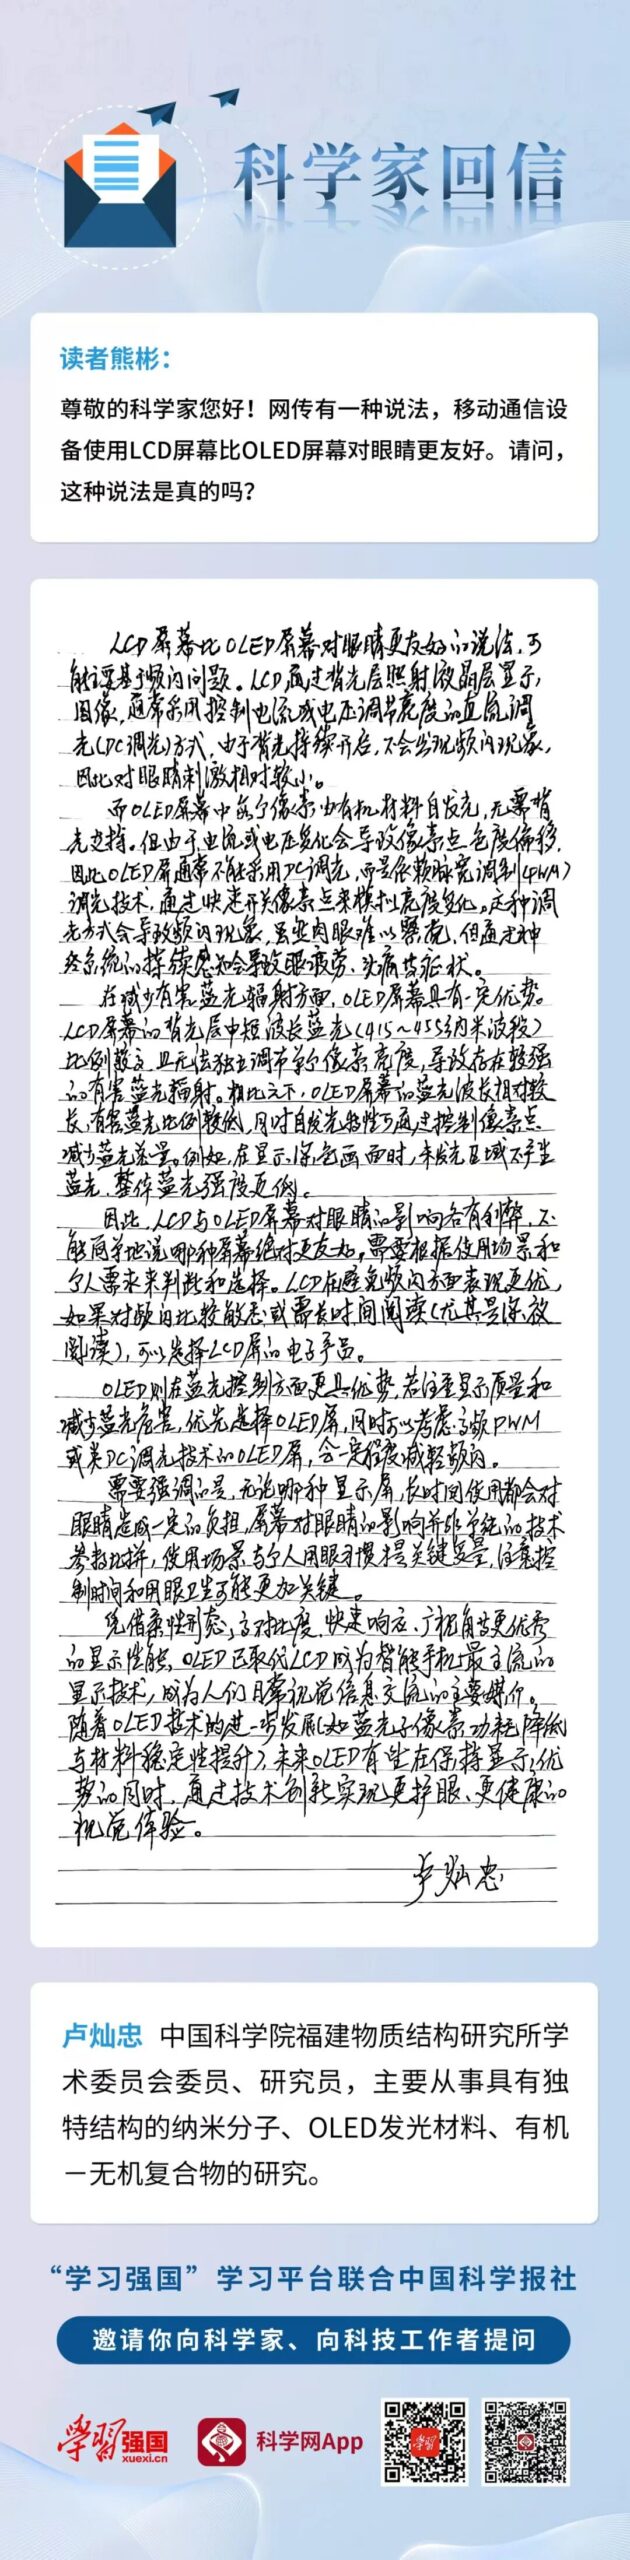 科学家回信
读者熊彬：
尊敬的科学家您好！网传有一种说法，移动通信设
备使用LCD屏幕比OLED屏幕对眼睛更友好。请问，
这种说法是真的吗？
LCD屏幕比OLED屏幕对眼睛更友好的说法，可
能主要基于频闪问题。LCD通过背光层照射液晶层显示
图像，通常采用控制电流或电压调节亮度的直流调
光（DC调光）方式，由于背光持续开启，不会出现频闪现象，
因此对眼睛刺激相对较小。
而OLED屏幕中每个像素由有机材料自发光，无需背
光支持。但由于电流或电压变化会导致像素点色度偏移，
因此OLED屏通常不能采用DC调光，而是依赖脉宽调制（PWM）
调光技术，通过快速开关像素点来模拟亮度变化。这种调
光方式会导致频闪现象，虽然肉眼难以察觉，但通过神
经系统的持续感知会导致眼疲劳、头痛等症状。
在减少有害蓝光辐射方面，OLED屏幕具有一定优势。
LCD屏幕的背光层中短波长蓝光（415～455纳米波段）
比例较高，且无法独立调节单个像素亮度，导致存在较强
的有害蓝光辐射。相比之下，OLED屏幕的蓝光波长相对较
长，有害蓝光比例较低，同时自发光特性可通过控制像素点
减少蓝光总量。例如，在显示深色画面时，未发光区域不产生
蓝光，整体蓝光强度更低。
因此，LCD与OLED屏幕对眼睛的影响各有利弊，不
能简单地说哪种屏幕绝对更友好，需要根据使用场景和
个人需求来判断和选择。LCD在避免频闪方面表现更优，
如果对频闪比较敏感或需长时间阅读（尤其是深夜
阅读），可以选择LCD屏的电子产品。
OLED则在蓝光控制方面更具优势，若注重显示质量和
减少蓝光危害，优先选择OLED屏，同时可以考虑高频PWM
或类DC调光技术的OLED屏，会一定程度减轻频闪。
需要强调的是，无论哪种显示屏，长时间使用都会对
眼睛造成一定的负担，屏幕对眼睛的影响并非单纯的技术
参数比拼，使用场景与个人用眼习惯才是关键变量，注意控
制时间和用眼卫生可能更加关键。
凭借柔性形态、高对比度、快速响应、广视角等更优秀
的显示性能，OLED已取代LCD成为智能手机上最主流的
显示技术，成为人们日常视觉信息交流的主要媒介。
随着OLED技术的进一步发展（如蓝光子像素功耗降低
与材料稳定性提升），未来OLED有望在保持显示优
势的同时，通过技术创新实现更护眼、更健康的
视觉体验。
卢灿忠
卢灿忠 中国科学院福建物质结构研究所学
术委员会委员、研究员，主要从事具有独
特结构的纳米分子、OLED发光材料、有机
－无机复合物的研究。
“学习强国”学习平台联合中国科学报社
邀请你向科学家、向科技工作者提问
学习强国
xuexi.cn
科学网App